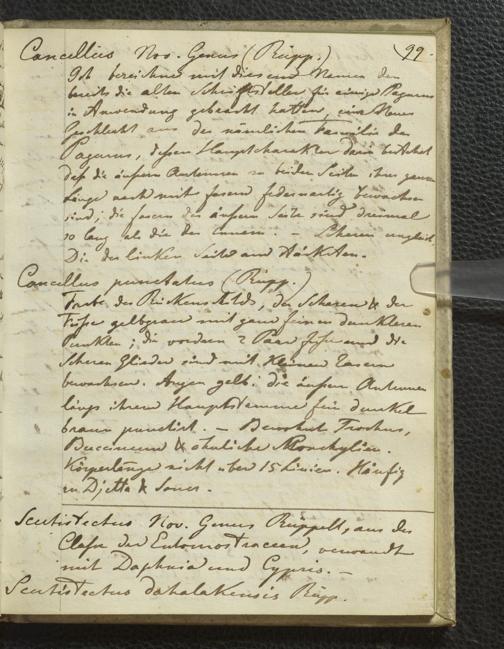 99.
Cancellus Nov. Genus (Rüpp.)
Ich bezeichne mit diesem Namen den
bereits die alten Schriftsteller für einige Pagurus
in Anwendung gebracht hatten, ein Neues
Geschlecht aus der nämlichen Familie der
Pagurus, dessen Hauptcharakter darin besteht
daß die äußern Antennen zu beiden Seiten ihrer ganzen
Länge nach mit fasern federnartig bewachsen
sind; die fasern der äußern Seite sind dreimal
so lang als die der innern. – Scheren ungleich
Die der linken Seite am Stärksten.
Cancellus punctatus (Rüpp.)
Farbe des Rückenschilds, der Scheren & der
Füße gelbgrau mit ganz feinen dunkleren
Punkten; die vordern 2 Paar Füße und die
Scheren Glieder sind mit kleinen fasern
bewachsen. Augen gelb. die äußern Antennen
längs ihrem Hauptstamme fein dunkel
braun punctirt. – Bewohnt Trochus,
Buccinum & ähnliche Conchylien.
Körperlänge nicht über 15 Linien. Häufig
zu Djetta &
Scutistectus Nov. Genus Rüppell, aus der
Classe der Entomostraceen, verwandt
mit Daphnia und Cypris. –
Scutistectus dahalakensis Rüpp.